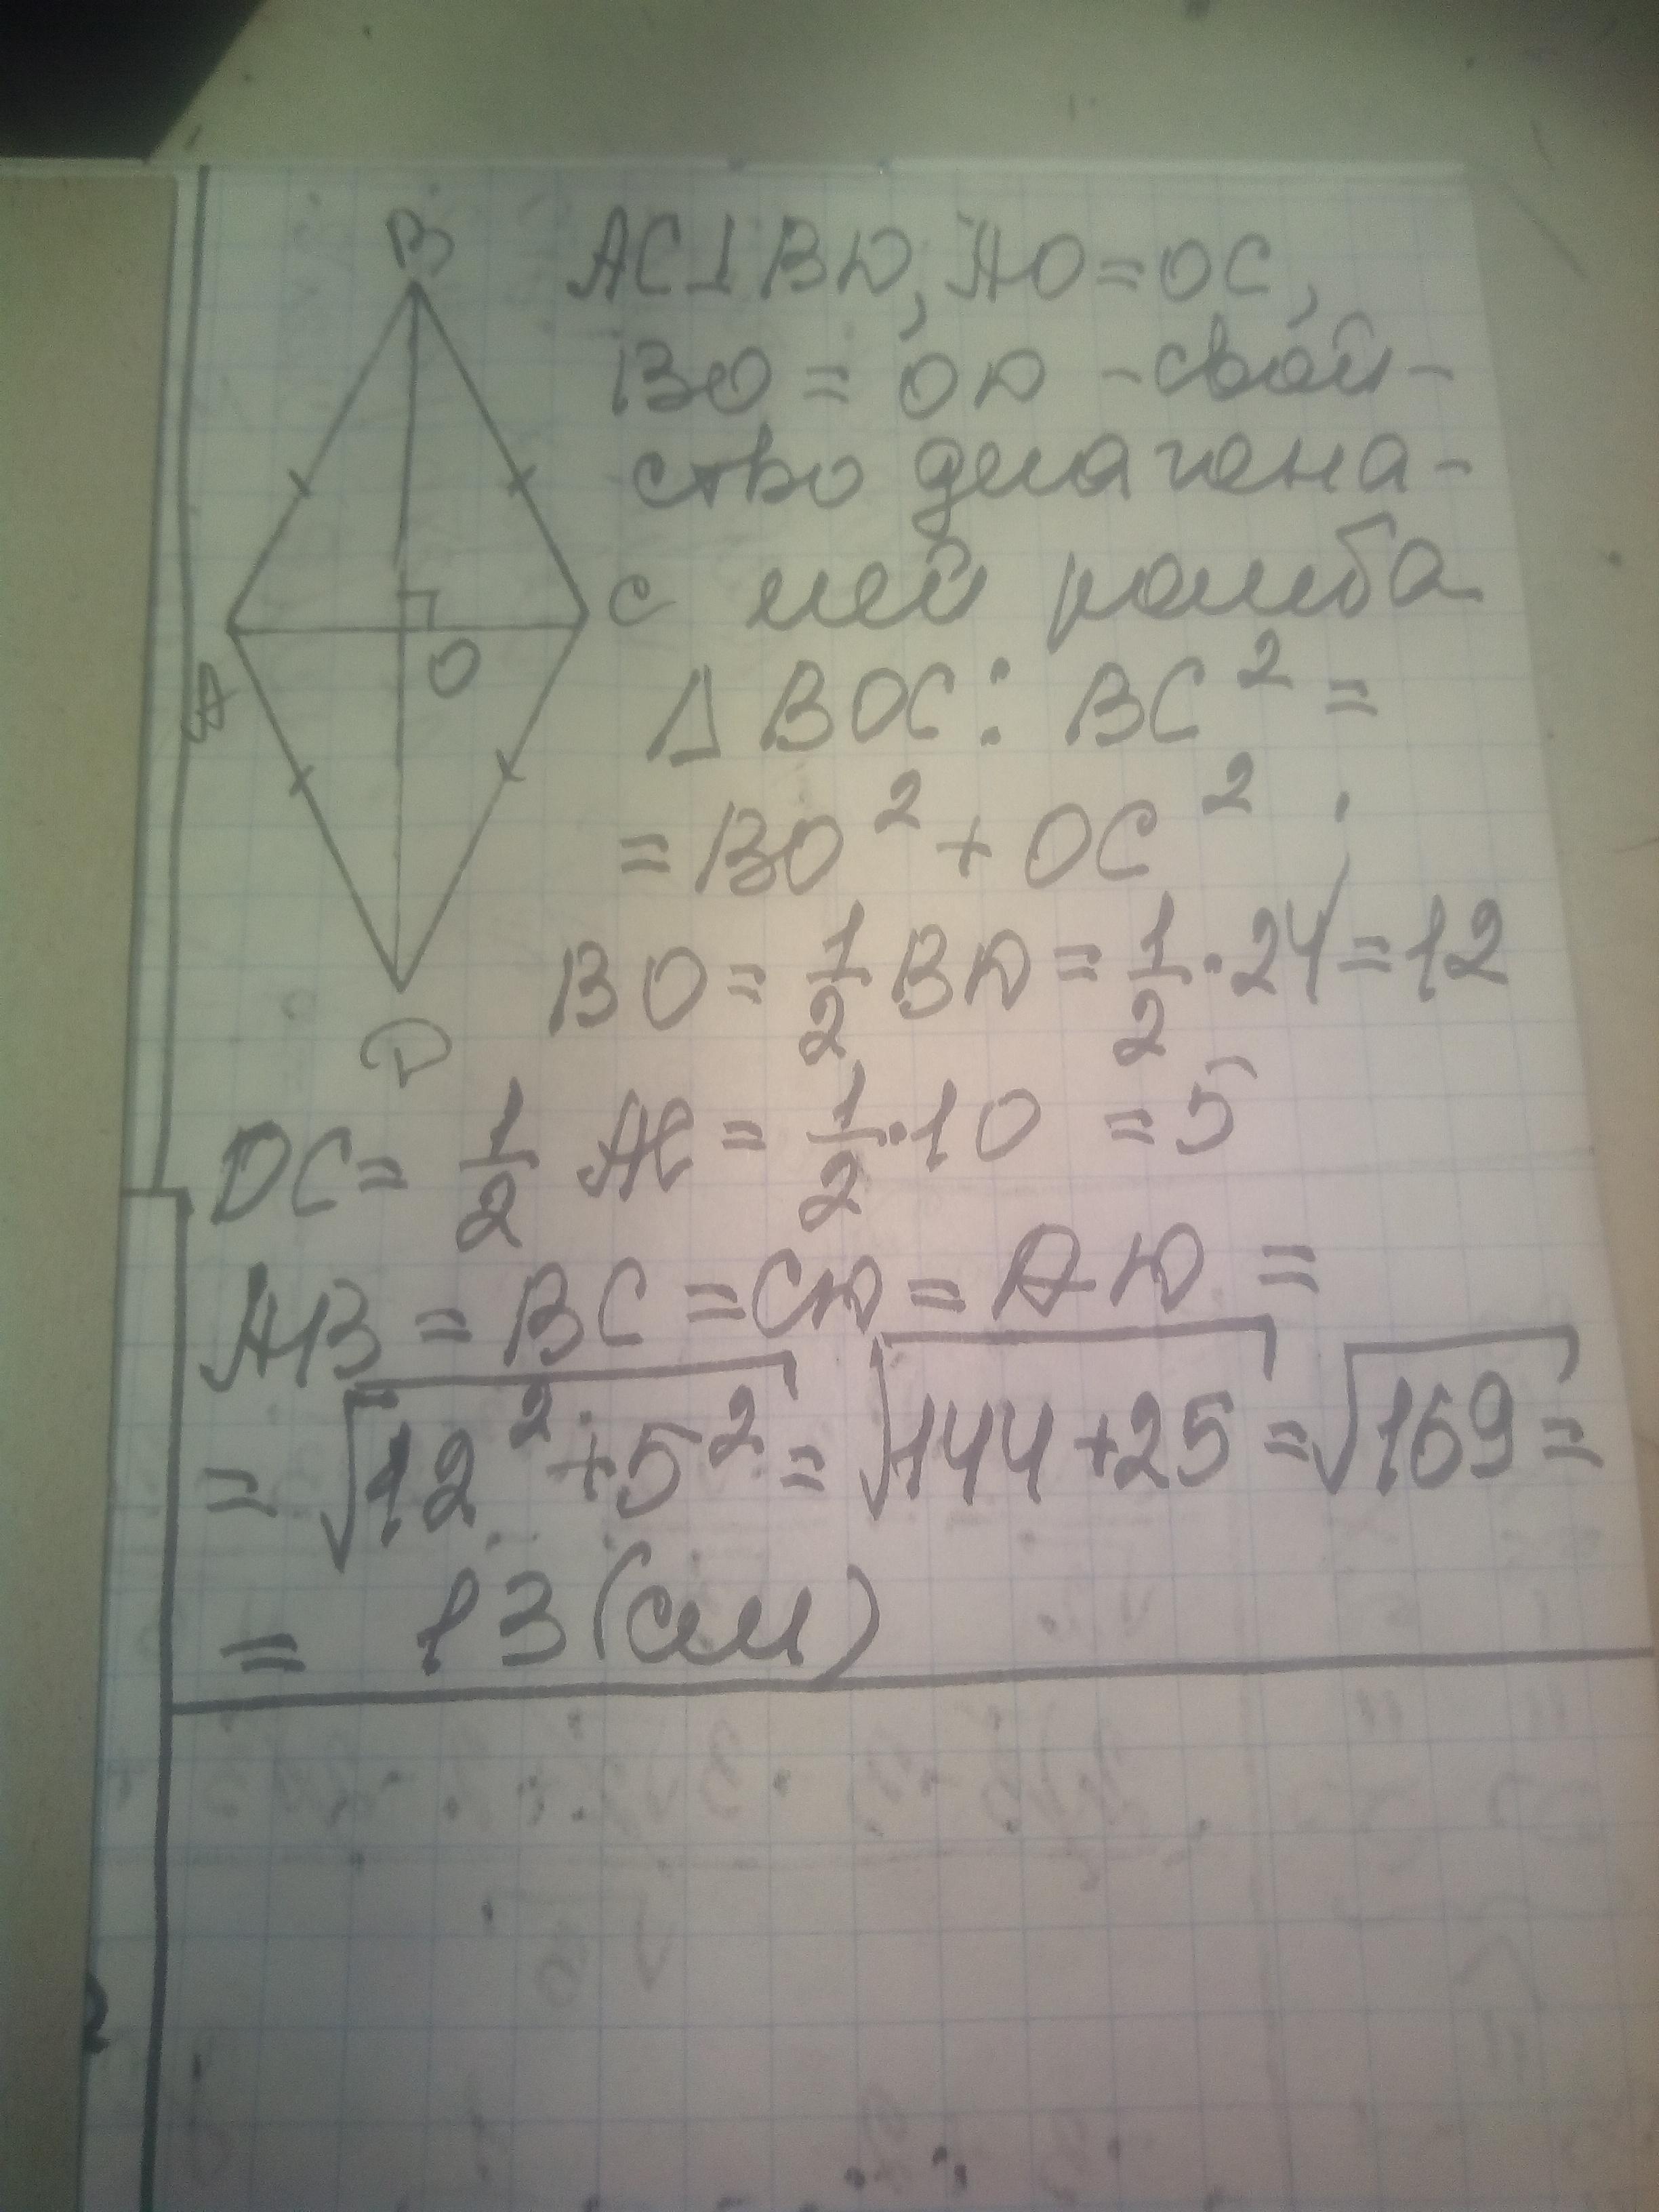 B
AC⊥BD, AO=OC,
BO = OD - свой-
ство диагона-
C лей ромба
A
O
△BOC: BC² =
= BO² + OC² ;
BO = 1/2 BD = 1/2 · 24 = 12
D
OC = 1/2 AC = 1/2 · 10 = 5
AB = BC = CD = AD =
= √12² + 5² = √144 + 25 = √169 =
= 13 (см)